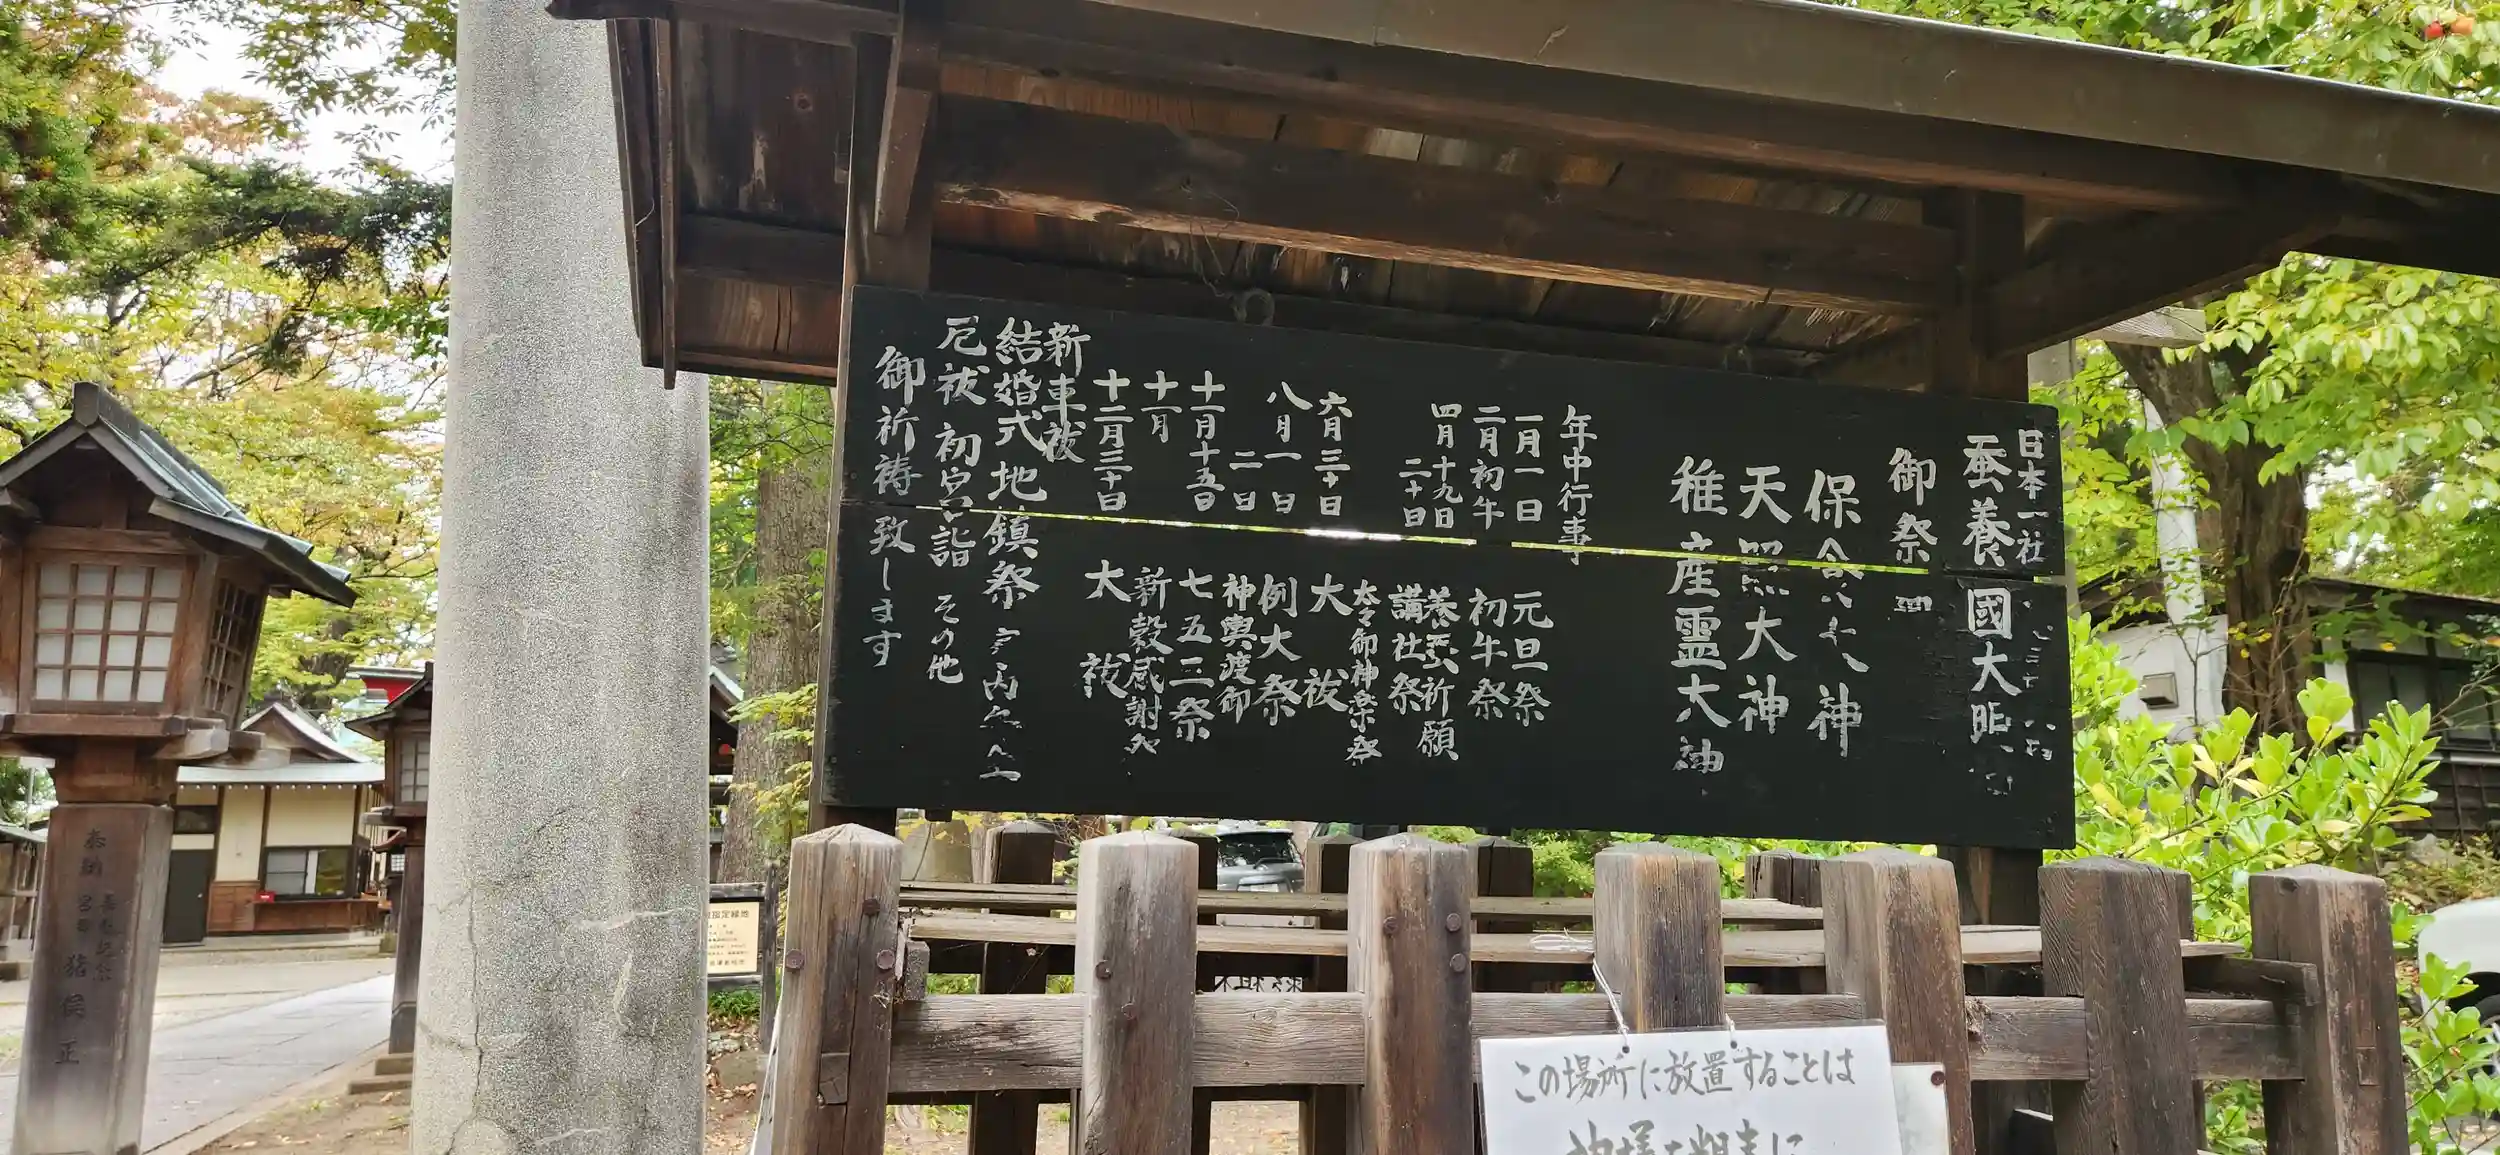 日本一社
蚕養國大明
御祭
保食大神
天照大神
稚産霊大神
年中行事
一月一日 元旦祭
二月初午 初午祭
四月十九日 養蚕祈願
二十日 講社祭
太々御神楽祭
六月三十日 大祓
八月一日 例大祭
二日 神輿渡御
十一月十五日 七五三祭
十一月 新穀感謝祭
十二月三十日 大祓
新車祓
結婚式 地鎮祭
厄祓 初宮詣 その他
御祈祷致します
この場所に放置することは
奉納
猪俣正